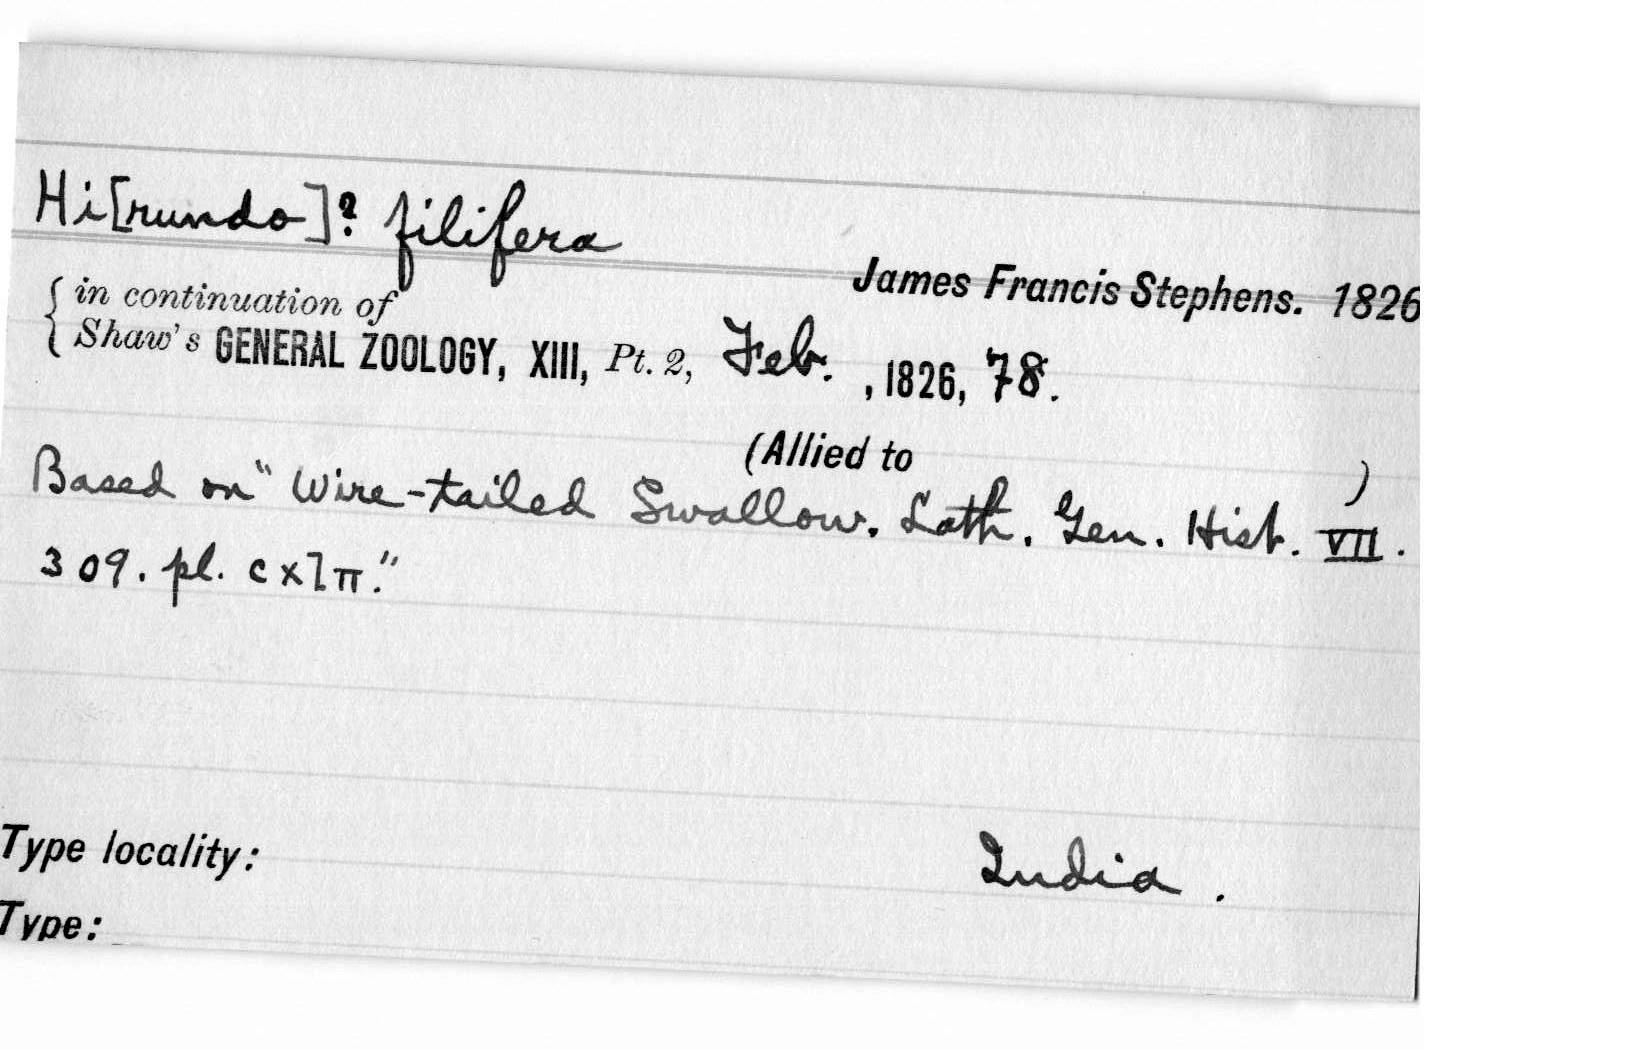 Hi[rundo]? filifera
James Francis Stephens. 1826
{ in continuation of
Shaw's GENERAL ZOOLOGY, XIII, Pt. 2, Feb. , 1826, 78.
(Allied to )
Based on "Wire-tailed Swallow. Lath. Gen. Hist. VII.
309. pl. cxlii."
Type locality: India.
Type: